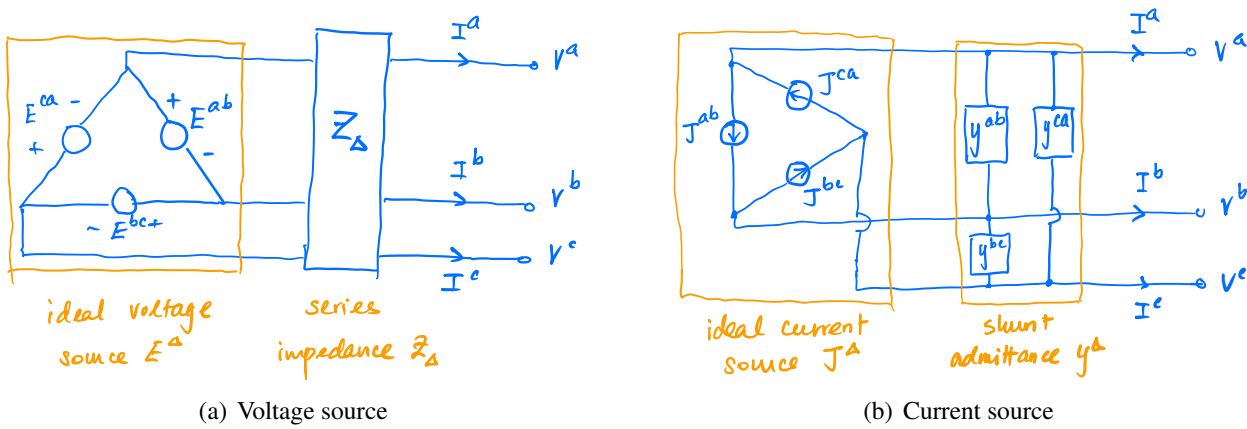 I^a
V^a
E^ca
-
+
+
E^ab
-
Z_Δ
I^b
V^b
- E^bc +
V^c
I^c
ideal voltage
source E^Δ
series
impedance Z_Δ
(a) Voltage source
I^a
V^a
J^ca
J^ab
y^ab
y^ca
J^bc
I^b
V^b
y^bc
V^c
I^c
ideal current
source J^Δ
shunt
admittance y^Δ
(b) Current source